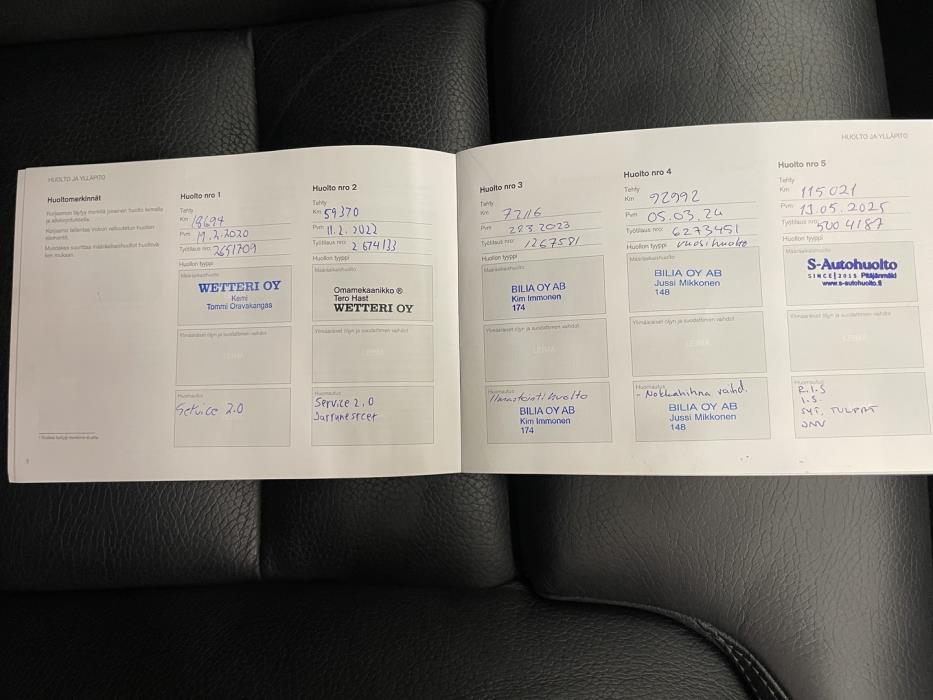 HUOLTO JA YLLÄPITO
Huoltomerkinnät
* Koskee tiettyjä
HUOLTO JA YLLÄPITO
Huolto nro 1
Tehty
Km 18694
Pvm 19.2.2020
Työtilaus nro: 2651709
Huollon tyyppi
Määräaikaishuolto
WETTERI OY
Kemi
Tommi Oravakangas
Ylimääräiset öljyn ja suodattimen vaihdot
LEIMA
Huomautus
Service 2.0
Huolto nro 2
Tehty
Km 59370
Pvm 11.2.2022
Työtilaus nro: 2674133
Huollon tyyppi
Määräaikaishuolto
Omamekaanikko ®
Tero Hast
WETTERI OY
Ylimääräiset öljyn ja suodattimen vaihdot
LEIMA
Huomautus
Service 2.0
Jarrunesteet
Huolto nro 3
Tehty
Km 77116
Pvm 28.3.2023
Työtilaus nro: 1267581
Huollon tyyppi
Määräaikaishuolto
BILIA OY AB
Kim Immonen
174
Ylimääräiset öljyn ja suodattimen vaihdot
LEIMA
Huomautus
Ilmastointihuolto
BILIA OY AB
Kim Immonen
174
Huolto nro 4
Tehty
Km 92992
Pvm 05.03.24
Työtilaus nro: 6273451
Huollon tyyppi vuosihuolto
Määräaikaishuolto
BILIA OY AB
Jussi Mikkonen
148
Ylimääräiset öljyn ja suodattimen vaihdot
LEIMA
Huomautus
- Nokkahihna vaihd.
BILIA OY AB
Jussi Mikkonen
148
Huolto nro 5
Tehty
Km 115021
Pvm 19.05.2025
Työtilaus nro: 5004187
Huollon tyyppi
Määräaikaishuolto
S-Autohuolto
SINCE 2015 Pitäjänmäki
www.s-autohuolto.fi
Ylimääräiset öljyn ja suodattimen vaihdot
LEIMA
Huomautus
R.I.S
I.S.
SYT. TULPAT
JNV